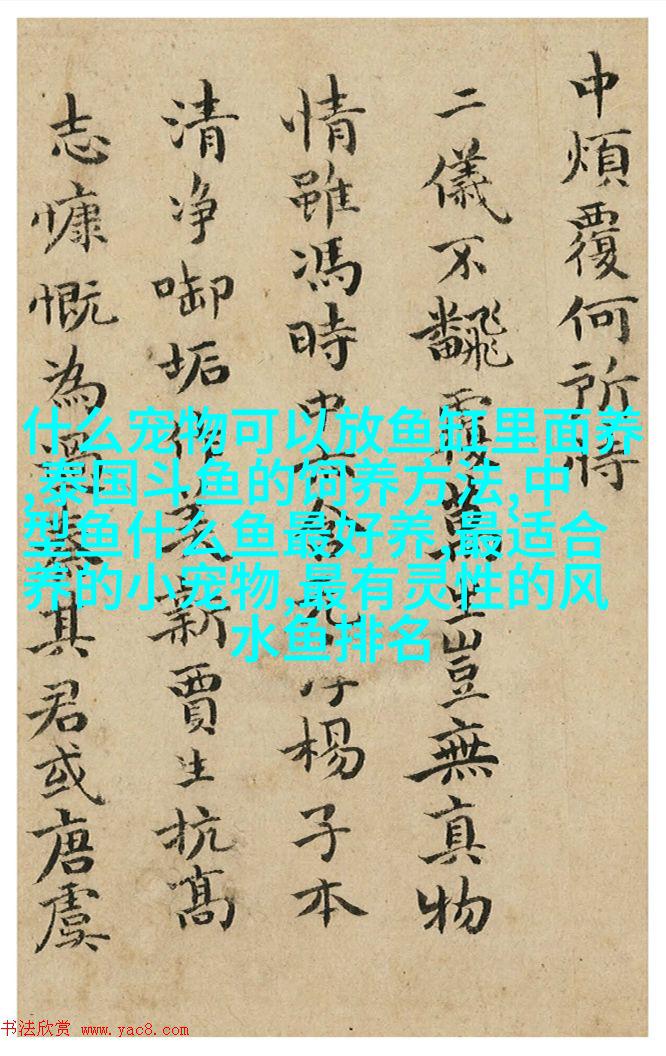 中煩覆何所將
二儀不飜覆萬生豈無真物
情雖馮時楊子本
清净啣垢作美新賈生抗高
志慷慨為過秦其君或唐虞
什么宠物可以放鱼缸里面养
,泰国斗鱼的饲养方法,中
型鱼什么鱼最好养,最适合
养的小宠物,最有灵性的风
水鱼排名
书法欣赏 www.yac8.com